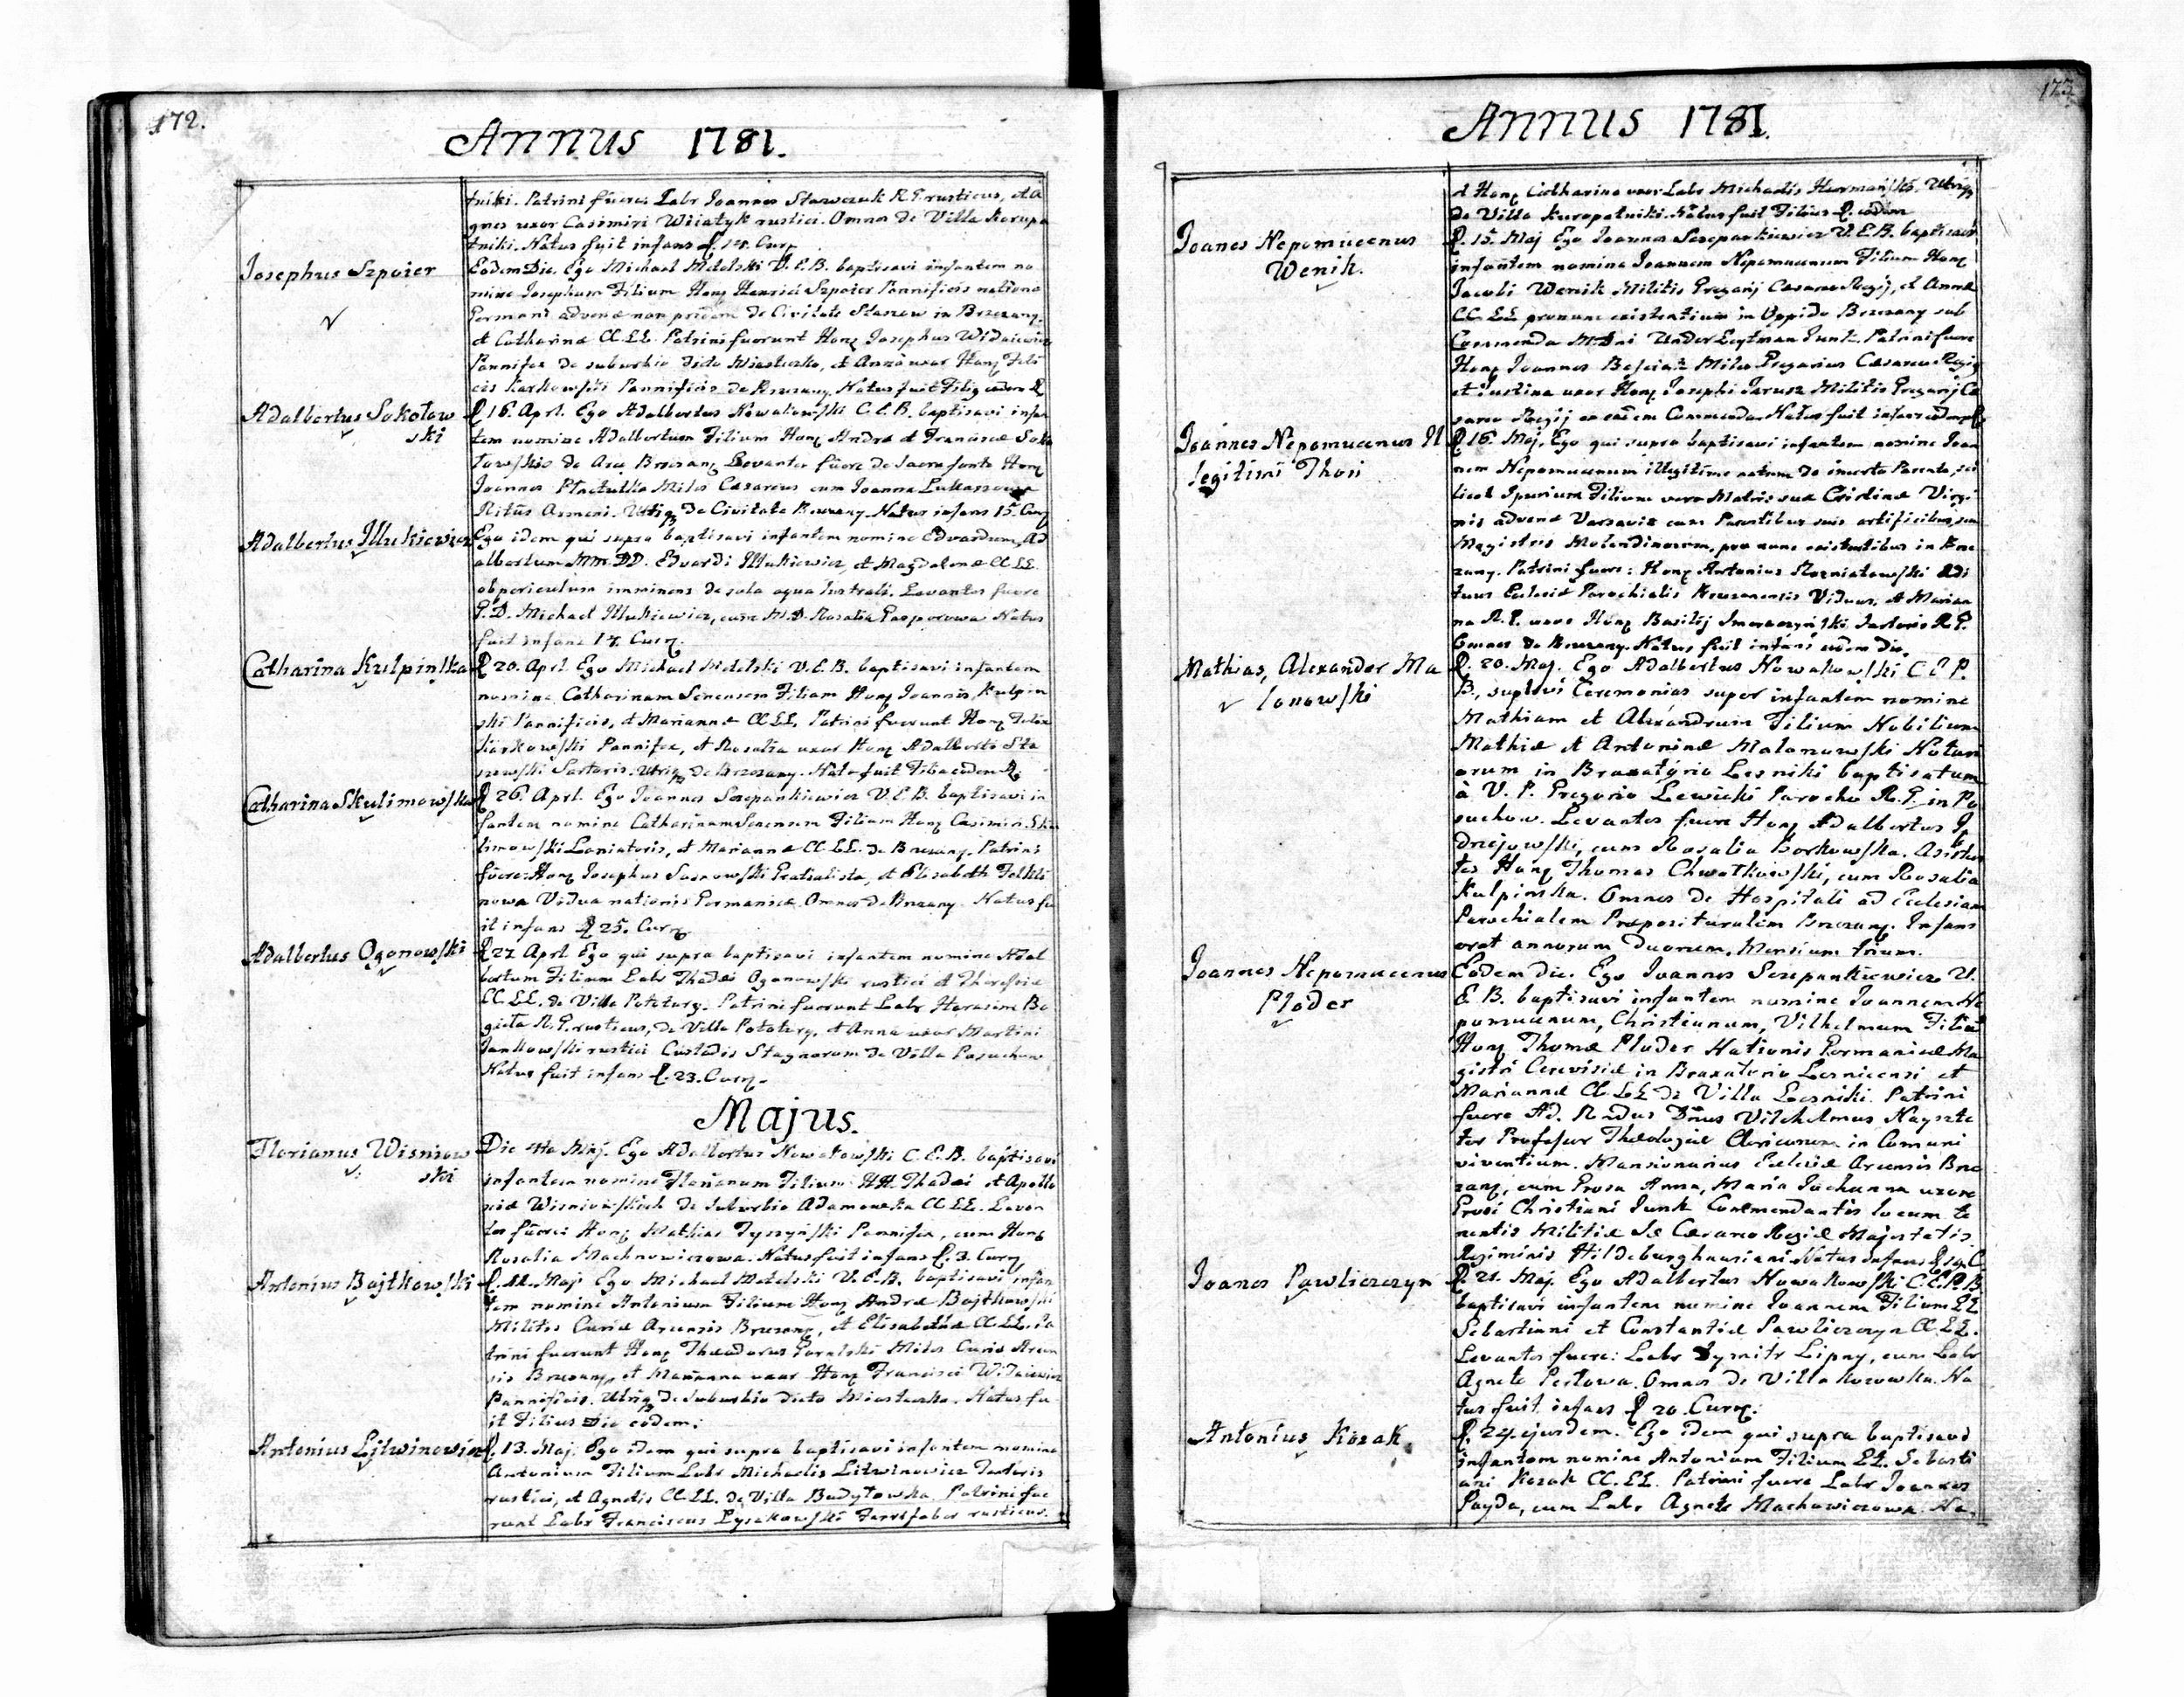 172.
Annus 1781.
tniki. Patrini fuere Labr Joannes Stawczuk R.G. rusticus, et A
gnes uxor Casimiri Wiiatyk rustici. Omnes de Villa Kuropa
tniki. Natus fuit infans
Josephus Szpoier
Eodem Die. Ego Michael Metelski V.E.B. baptisavi infantem no
mine Josephum Filium Hon Henrici Szpoier Pannificis natione
Germani advenæ non pridem de Civitate Staszow in Brzezany,
et Catharinæ CC.LL. Patrini fuerunt Hon Josephus Widaiewicz
Pannifex de suburbio dicto Miasteczko, et Anna uxor Hon Feli
cis Karkowski Pannificis de Brzezany. Natus fuit Filig eodem
Adalbertus Sokołow
ski
16. Aprl. Ego Adalbertus Nowakowski C.E.B. baptisavi infan
tem nomine Adalbertum Filium Hon Andreæ et Franciscæ Soko
łowskie de Brzezan Levantes fuere de sacro fonte Hon
Joannes Miles Cæsareus cum Joanna
Ritus Armeni. Utriq de Civitate Brzezany. Natus infans 15. Cur
Adalbertus Illukiewicz
Ego idem qui supra baptisavi infantem nomine Edvardum, Ad
albertum MM. DD. Edvardi Illukiewicz, et Magdalenæ CC.LL.
ob periculum imminens de sola aqua lustrali. Levantes fuere
G.D. Michael Illukiewicz, cum M.D. Rosalia Natus
fuit infans 17. Cur.
Catharina Kulpinska
20. Aprl. Ego Michael Metelski V.E.B. baptisavi infantem
nomine Catharinam Senensem Filiam Hon Joannis Kulpin
ski Pannificis, et Mariannæ CC.LL. Patrini fuerunt Hon Felix
Karkowski Pannifex, et Rosalia uxor Hon Adalberti Sta
szewski Sartoris. Utriq de Brzezany. Nata fuit Filia eodem
Catharina Skulimowska
26. Aprl. Ego Joannes Szczepankiewicz V.E.B. baptisavi in
fantem nomine Catharinam Senensem Filiam Hon Casimiri Sku
limowski Laniatoris, et Mariannæ CC.LL. de Brzezany. Patrini
fuere: Hon Josephus Sosnowski et Elisabeth
nowa Vidua nationis Germanicæ. Omnes de Brzezany. Natus fu
it infans 25. Cur
Adalbertus Ogonowski
27 Aprl. Ego qui supra baptisavi infantem nomine Adal
bertum Filium Labr Thadei Ogonowski rustici et Theresiæ
CC.LL. de Villa Potutory. Patrini fuerunt Labr Herasim Bo
R.G. rusticus, de Villa Potutory, et Anna uxor Martini
Jankowski rustici Custodis Stagnorum de Villa Posuchow
Natus fuit infans 23. Cur
Majus.
Florianus Wisniow
ski
Die 4ta Maj. Ego Adalbertus Nowakowski C.E.B. baptisavi
infantem nomine Florianum Filium HH. Thadei et Apollo
niæ Wisniowskich de Suburbio Adamowka CC.LL. Levan
tes fuere: Hon Mathias Tyszyński Pannifex, cum Hon
Rosalia Machnowiczowa. Natus fuit infans 3. Cur
Antonius Bojtkowski
Maji Ego Michael Metelski V.E.B. baptisavi infan
tem nomine Antonium Filium Hon Andreæ Bojtkowski
Militis Curiæ Arcensis Brzezan, et Elisabethæ CC.LL. Pa
trini fuerunt Hon Theodorus Goralski Miles Curiæ Arcen
sis Brzezan, et Marianna uxor Hon Francisci Widaiewicz
Pannificis. Utriq de Suburbio dicto Miasteczko. Natus fu
it Filius Die eodem.
Antonius Litwinowicz
13. Maj. Ego idem qui supra baptisavi infantem nomine
Antonium Filium Labr Michaelis Litwinowicz Textoris
rustici, et Agnetis CC.LL. de Villa Budyłowka. Patrini fue
runt Labr Franciscus Łysakowski Ferrifaber rusticus.
Annus 1781.
et Hon Catharina uxor Labr Michaelis Hermański. Utriq
de Villa Kuropatniki. Natus fuit Filius eodem
Joanes Nepomucenus
Wenik.
15. Maj Ego Joannes Szczepankiewicz V.E.B. baptisavi
infantem nomine Joannem Nepomucenum Filium Hon
Jacobi Wenik Militis Gregarij Cæsareo Regij, et Annæ
CC.LL pronunc existentium in Oppido Brzezany sub
Commenda Under Leytman Junk. Patrini fuere
Hon Joannes Miles Gregarius Cæsareo Regig
et Justina uxor Hon Josephi Jarusz Militis Gregarij Cæ
sareo Regij ex eadem Commenda. Natus fuit infans
Joannes Nepomucenus Il
legitimi Thori
16. Maj. Ego qui supra baptisavi infantem nomine Joan
nem Nepomucenum illegitime natum de incerto Parente, sci
licet Spurium Filium vero Matris suæ Cristinæ Virgi
nis advenæ Varsavia cum Parentibus suis artificibus, seu
Magistris Molendinorum, pro nunc existentibus in Brze
zany. Patrini fuere: Hon Antonius Rozniatowski Ædi
tuus Ecclesiæ Parochialis Brzezanensis Viduus, et Marian
na R.G. uxor Hon Basilij Smereczyński Sartoris R.G.
Omnes de Brzezany. Natus fuit infans eodem die.
Mathias, Alexander Ma
lonowski
20. Maj. Ego Adalbertus Nowakowski C E P.
B., suplevi Ceremonias super infantem nomine
Mathiam et Alexandrum Filium Nobilium
Mathiæ et Antoninæ Malonowski
orum in Braxatorio Lesniki baptisatum
à V. P. Gregorio Lewicki Parocho R.G. in Po
suchow. Levantes fuere Hon Adalbertus Ję
drziejowski, cum Rosalia Borkowska. Asisten
tes Hon Thomas Chwatkowski, cum Rosalia
Kulpinska. Omnes de Hospitali ad Ecclesiam
Parochialem Præposituralem Brzezan. Infans
erat annorum duorum, Mensium trium.
Joannes Nepomucenus
Ploder
Eodem die. Ego Joannes Szczepankiewicz V.
E B. baptisavi infantem nomine Joannem Ne
pomucenum, Christianum, Vilhelmum Filium
Hon Thomæ Ploder Nationis Germanicæ Ma
gistri Cerevisiæ in Braxatorio Lesnicensi et
Mariannæ CC.LL de Villa Lesniki. Patrini
fuere Ad. Rndus Dnus Vilchelmus
ter Profesor Theologiæ Clericorum in Comuni
viventium. Mansionarius Ecclesiæ Arcensis Brze
zan, cum Gnosa Anna, Maria Jochanna uxore
Gnosi Christiani Junk Commendantis locum te
nentis Militiæ S. Cæsareo Regiæ Majestatis
Regiminis Hildeburghausiani. Natus infans
Joanes Pawliczczyn
21. Maj. Ego Adalbertus Nowakowski C.E.P.B
baptisavi infantem nomine Joannem Filium LL
Sebastiani et Constantiæ Pawliczczyn CC.LL.
Levantes fuere: Labr Dymitr Lipny, cum Labr
Agnete Pestowa. Omnes de Villa Kozowka. Na
tus fuit infans 20. Cur.
Antonius Kozak.
24. ejusdem. Ego idem qui supra baptisavi
infantem nomine Antonium Filium LL. Sebasti
ani Kozak CC.LL. Patrini fuere Labr Joannes
Payda, cum Labr Agnete Machowiczowa. Na.